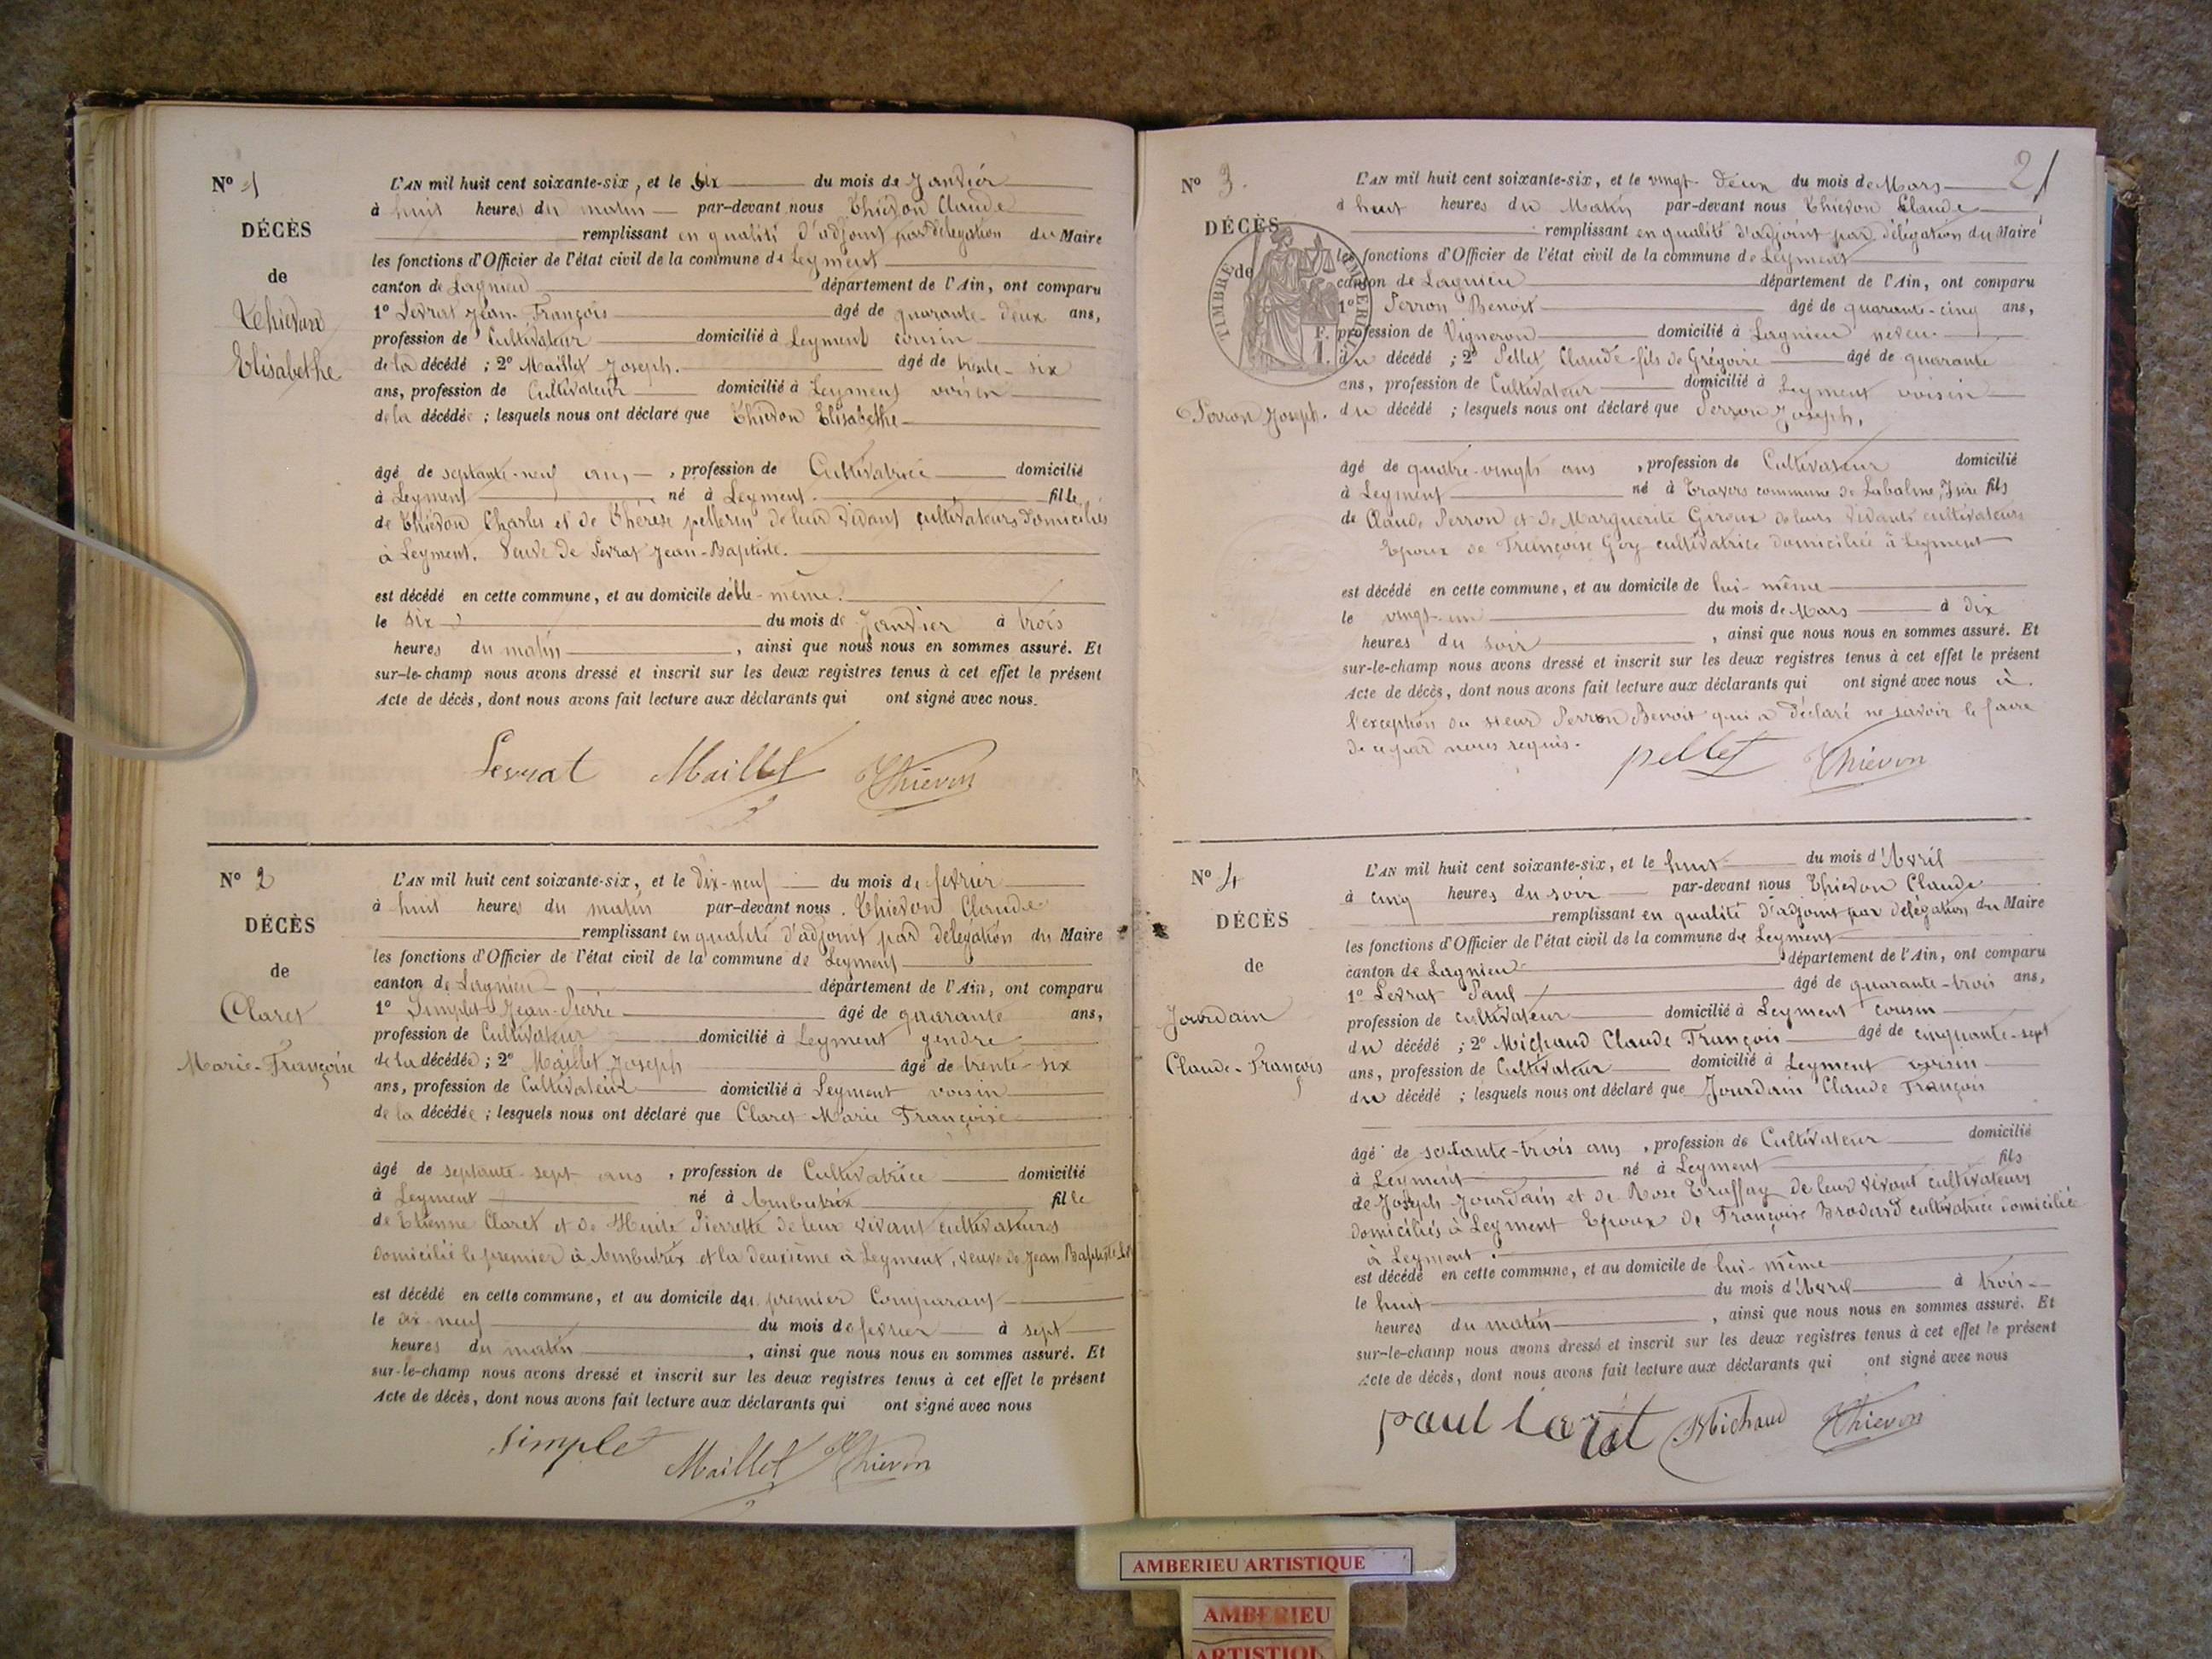 Nº 1
DÉCÈS
de
Thievon
Elisabethe
L'AN mil huit cent soixante-six, et le six du mois de Janvier
à huit heures du matin par-devant nous Thievon Claude
remplissant en qualité d'adjoint par délégation du Maire
les fonctions d'Officier de l'état civil de la commune de Leyment
canton de Lagnieu département de l'Ain, ont comparu
1º Levrat Jean-François âgé de quarante-deux ans,
profession de Cultivateur domicilié à Leyment cousin
de la décédé ; 2º Maillet Joseph. âgé de trente-six
ans, profession de Cultivateur domicilié à Leyment voisin
de la décédée ; lesquels nous ont déclaré que Thievon Elisabethe
âgé de septante-neuf ans, profession de Cultivatrice domicilié
à Leyment né à Leyment. fille
de Thievon Charles et de Thérèse pellerin de leur vivant cultivateurs domiciliés
à Leyment. Veuve de Levrat Jean-Baptiste.
est décédé en cette commune, et au domicile d'elle-même.
le six du mois de Janvier à trois
heures du matin, ainsi que nous nous en sommes assuré. Et
sur-le-champ nous avons dressé et inscrit sur les deux registres tenus à cet effet le présent
Acte de décès, dont nous avons fait lecture aux déclarants qui ont signé avec nous.
Levrat Maillet Thievon
Nº 2
DÉCÈS
de
Claret
Marie-Françoise
L'AN mil huit cent soixante-six, et le dix-neuf du mois de fevrier
à huit heures du matin par-devant nous. Thievon Claude
remplissant en qualité d'adjoint par délégation du Maire
les fonctions d'Officier de l'état civil de la commune de Leyment
canton de Lagnieu département de l'Ain, ont comparu
1º Simplet Jean-Pierre âgé de quarante ans,
profession de Cultivateur domicilié à Leyment gendre
de la décédée ; 2º Maillet Joseph âgé de trente-six
ans, profession de Cultivateur domicilié à Leyment voisin
de la décédée ; lesquels nous ont déclaré que Claret Marie Françoise
âgé de septante-sept ans, profession de Cultivatrice domicilié
à Leyment né à Ambutrix fille
de Etienne Claret et de Pierrette de leur vivant cultivateurs
domicilié le premier à Ambutrix et la deuxième à Leyment, veuve de Jean Baptiste
est décédé en cette commune, et au domicile du premier Comparant
le dix-neuf du mois de fevrier à sept
heures du matin, ainsi que nous nous en sommes assuré. Et
sur-le-champ nous avons dressé et inscrit sur les deux registres tenus à cet effet le présent
Acte de décès, dont nous avons fait lecture aux déclarants qui ont signé avec nous
simplet Maillet Thievon
21
Nº 3.
DÉCÈS
de
Perron Joseph.
TIMBRE IMPERIAL
L'AN mil huit cent soixante-six, et le vingt-deux du mois de Mars
à huit heures du Matin par-devant nous Thievon Claude
remplissant en qualité d'adjoint par délégation du Maire
les fonctions d'Officier de l'état civil de la commune de Leyment
canton de Lagnieu département de l'Ain, ont comparu
1º Perron Benoit âgé de quarante-cinq ans,
profession de Vigneron domicilié à Lagnieu neveu
du décédé ; 2º Pellet Claude fils de Grégoire âgé de quarante
ans, profession de Cultivateur domicilié à Leyment voisin
du décédé ; lesquels nous ont déclaré que Perron Joseph,
âgé de quatre-vingts ans, profession de Cultivateur domicilié
à Leyment né à Travers commune de Labalme, Isère fils
de Claude Perron et de Marguerite Giroux de leurs vivants cultivateurs
Epoux de Françoise Goy cultivatrice domiciliée à Leyment
est décédé en cette commune, et au domicile de lui-même
le vingt-un du mois de Mars à dix
heures du soir, ainsi que nous nous en sommes assuré. Et
sur-le-champ nous avons dressé et inscrit sur les deux registres tenus à cet effet le présent
Acte de décès, dont nous avons fait lecture aux déclarants qui ont signé avec nous à
l'exception du sieur Perron Benoit qui a déclaré ne savoir le faire
de ce par nous requis.
pellet Thievon
Nº 4
DÉCÈS
de
Jourdain
Claude-François
L'AN mil huit cent soixante-six, et le huit du mois d'Avril
à cinq heures du soir par-devant nous Thievon Claude
remplissant en qualité d'adjoint par délégation du Maire
les fonctions d'Officier de l'état civil de la commune de Leyment
canton de Lagnieu département de l'Ain, ont comparu
1º Levrat Paul âgé de quarante-trois ans,
profession de cultivateur domicilié à Leyment cousin
du décédé ; 2º Michaud Claude François âgé de cinquante-sept
ans, profession de Cultivateur domicilié à Leyment voisin
du décédé ; lesquels nous ont déclaré que Jourdain Claude François
âgé de soixante-trois ans, profession de Cultivateur domicilié
à Leyment né à Leyment fils
de Joseph Jourdain et de Rose Truffay de leur vivant cultivateurs
domiciliés à Leyment Epoux de Françoise Brodard cultivatrice domiciliée
à Leyment.
est décédé en cette commune, et au domicile de lui-même
le huit du mois d'Avril à trois
heures du matin, ainsi que nous nous en sommes assuré. Et
sur-le-champ nous avons dressé et inscrit sur les deux registres tenus à cet effet le présent
Acte de décès, dont nous avons fait lecture aux déclarants qui ont signé avec nous
paul Michaud Thievon
AMBERIEU ARTISTIQUE
AMBERIEU
ARTISTIQU